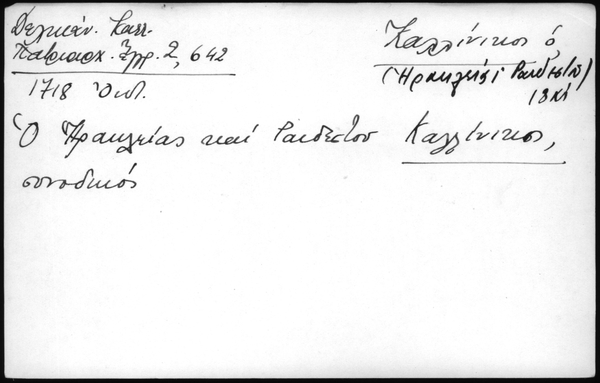 Δελικάν. Καλλ.
Πατριαρχ. Ἔγγρ. 2, 642
1718 Ὀκτ.
Καλλίνικος ὁ,
(Ἡρακλείας Ραιδεστοῦ)
18ος
Ὁ Ἡρακλείας καί Ραιδεστοῦ Καλλίνικος,
συνοδικός